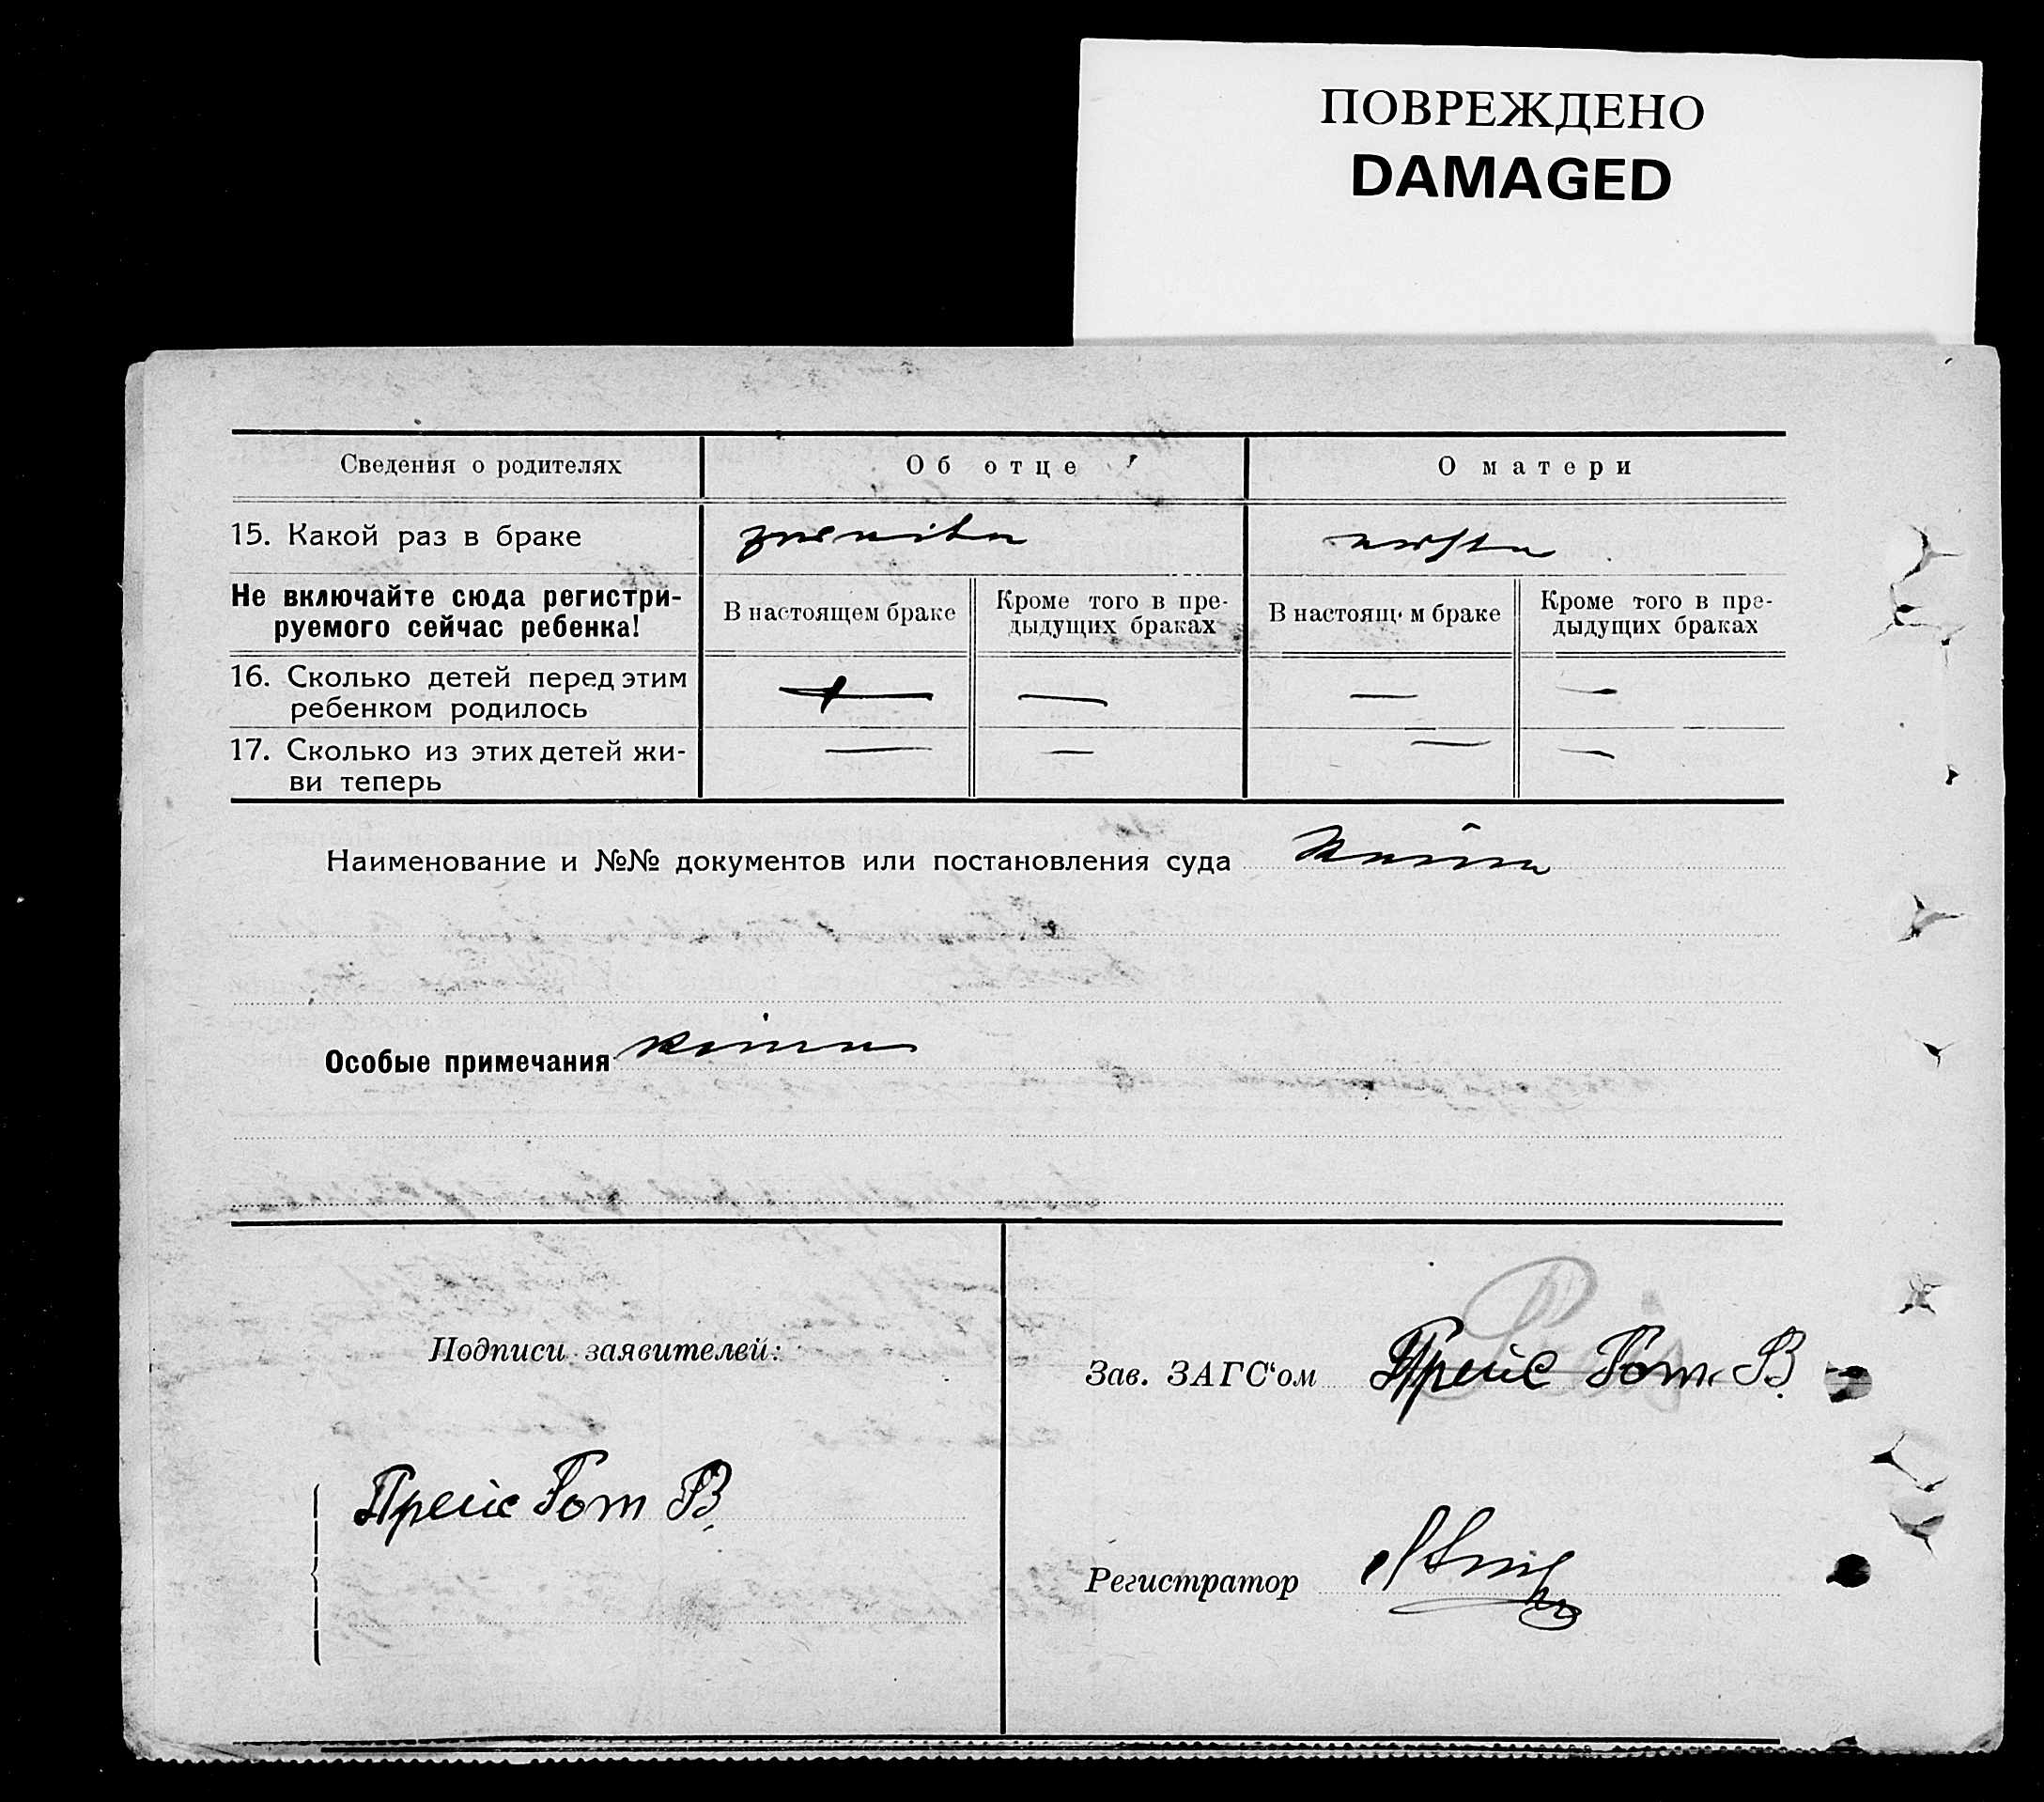 ПОВРЕЖДЕНО
DAMAGED
Сведения о родителях Об отце О матери
15. Какой раз в браке zweiten ersten
Не включайте сюда регистри-
руемого сейчас ребенка!
В настоящем браке
Кроме того в пре-
дыдущих браках
В настоящ м браке
Кроме того в пре-
дыдущих браках
16. Сколько детей перед этим
ребенком родилось — — — —
17. Сколько из этих детей жи-
ви теперь — — — —
Наименование и №№ документов или постановления суда
Особые примечания keine
Подписи заявителей:
Зав. ЗАГС“ом Прейс Гот. В.
Прейс Гот В.
Регистратор